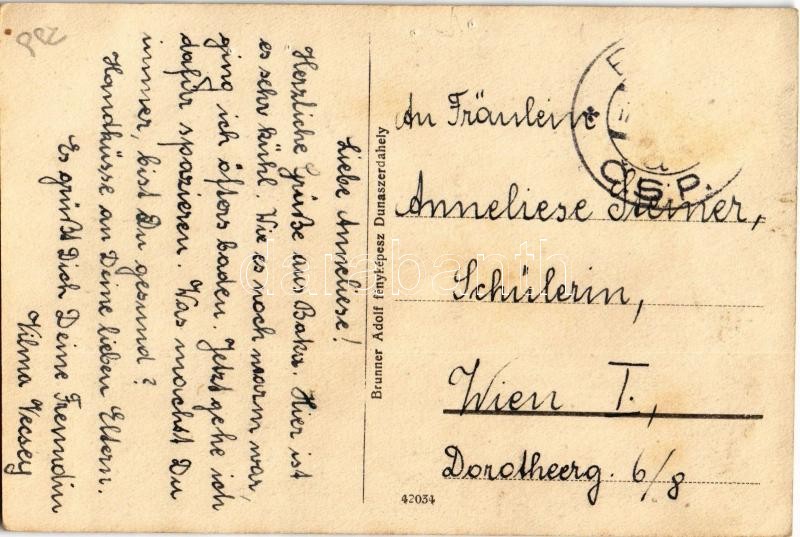 Liebe Anneliese!
Herzliche Grüße aus Baka. Hier ist
es sehr kühl. Wie es noch warm war,
ging ich öfters baden. Jetzt gehe ich
dafür spazieren. Was machst Du
immer, bist Du gesund?
Handküsse an Deine lieben Eltern.
Es grüßt Dich Deine Freundin
Vilma Vecsey
Brunner Adolf fényképesz Dunaszerdahely
An Fräulein
Anneliese Steiner,
Schülerin,
Wien I.,
Dorotheerg. 6/8
42034
Č.S.P.
darabanth